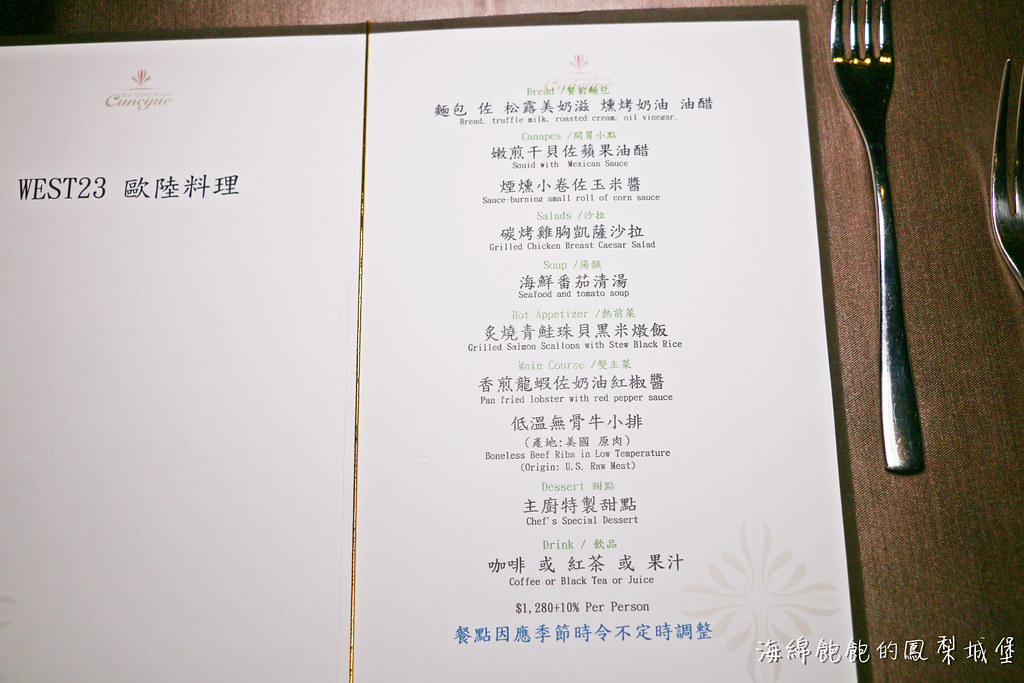 Hot Spring Resort
Cuncyue
WEST23 歐陸料理
Bread /餐前麵包
麵包 佐 松露美奶滋 燻烤奶油 油醋
Bread, truffle milk, roasted cream, oil vinegar.
Canapes /開胃小點
嫩煎干貝佐蘋果油醋
Squid with Mexican Sauce
煙燻小卷佐玉米醬
Sauce-burning small roll of corn sauce
Salads /沙拉
碳烤雞胸凱薩沙拉
Grilled Chicken Breast Caesar Salad
Soup /湯類
海鮮番茄清湯
Seafood and tomato soup
Hot Appetizer /熱前菜
炙燒青鮭珠貝黑米燉飯
Grilled Salmon Scallops with Stew Black Rice
Main Course /雙主菜
香煎龍蝦佐奶油紅椒醬
Pan fried lobster with red pepper sauce
低溫無骨牛小排
(產地:美國 原肉)
Boneless Beef Ribs in Low Temperature
(Origin: U.S. Raw Meat)
Dessert 甜點
主廚特製甜點
Chef's Special Dessert
Drink / 飲品
咖啡 或 紅茶 或 果汁
Coffee or Black Tea or Juice
$1,280+10% Per Person
餐點因應季節時令不定時調整
海綿飽飽的鳳梨城堡